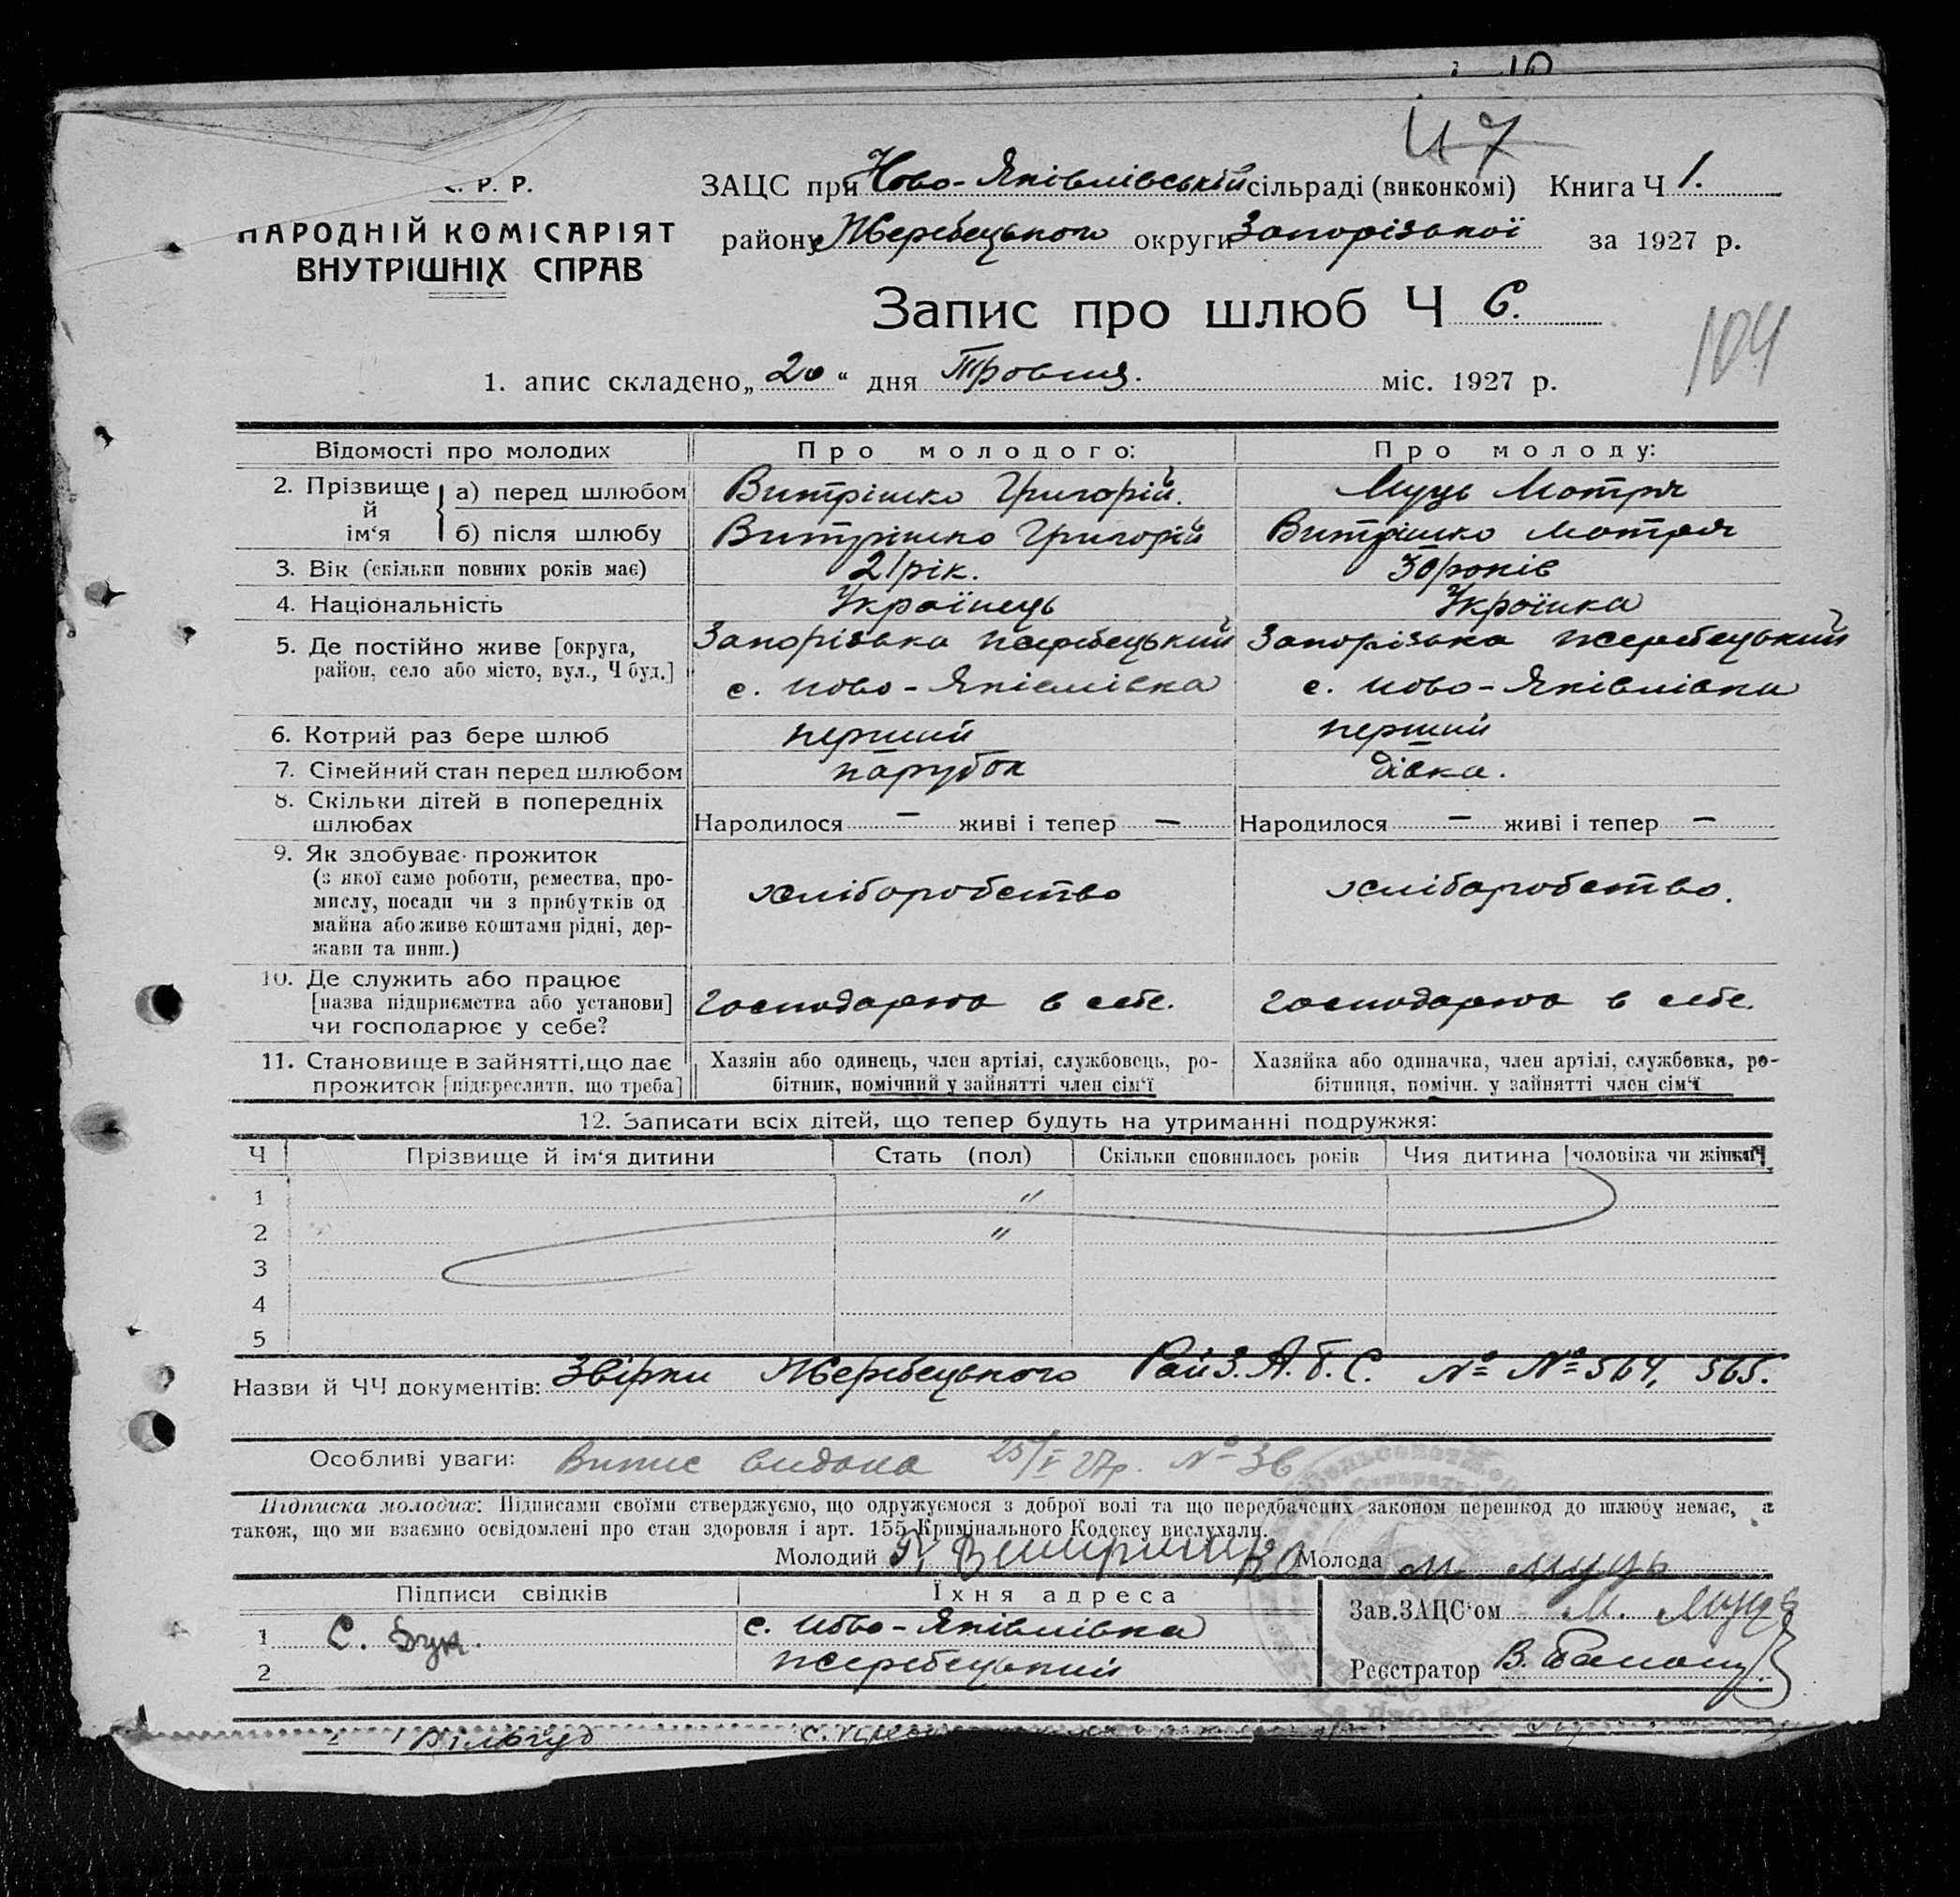 47
С. Р. Р.
НАРОДНІЙ КОМІСАРІЯТ
ВНУТРІШНІХ СПРАВ
ЗАЦС при Ново-Яківлівській сільраді (виконкомі) Книга Ч 1.
району Жеребецького округи Запорізької за 1927 р.
Запис про шлюб Ч 6.
104
1. апис складено „20“ дня Травня. міс. 1927 р.
Відомості про молодих Про молодого: Про молоду:
2. Прізвище й ім‘я а) перед шлюбом Витрішко Григорій. Муць Мотря
б) після шлюбу Витрішко Григорій Витрішко Мотря
3. Вік (скільки повних років має) 21 рік. 30 років
4. Національність Українець Українка
5. Де постійно живе [округа, Запорізька Жеребецький Запорізька Жеребецький
район, село або місто, вул., Ч буд.] с. Ново-Яківлівка с. Ново-Яківлівка
6. Котрий раз бере шлюб перший перший
7. Сімейний стан перед шлюбом парубок дівка.
8. Скільки дітей в попередніх
шлюбах Народилося — живі і тепер — Народилося — живі і тепер —
9. Як здобуває прожиток
(з якої саме роботи, ремества, про-
мислу, посади чи з прибутків од хліборобство хліборобство.
майна або живе коштами рідні, дер-
жави та инш.)
10. Де служить або працює
[назва підприємства або установи] господарюю в себе. господарюю в себе.
чи господарює у себе?
11. Становище в зайнятті, що дає Хазяїн або одинець, член артілі, службовець, ро- Хазяйка або одиначка, член артілі, службовка, ро-
прожиток [підкреслити, що треба] бітник, помічний у зайнятті член сім‘ї бітниця, помічн. у зайнятті член сім‘ї
12. Записати всіх дітей, що тепер будуть на утриманні подружжя:
Ч Прізвище й ім‘я дитини Стать (пол) Скільки сповнилось років Чия дитина [чоловіка чи жінки]
1 "
2 "
3
4
5
Назви й ЧЧ документів: Звірки Жеребецького Рай З.А.Г.С. № № 564, 565.
Особливі уваги: Витис видана 25/V 27р. № 36
Підписка молодих: Підписами своїми стверджуємо, що одружуємося з доброї волі та що передбачених законом перешкод до шлюбу немає, а
також, що ми взаємно освідомлені про стан здоровля і арт. 155 Кримінального Кодексу вислухали.
Молодий Г. Витришко Молода М. Муць
Підписи свідків Їхня адреса
Зав.ЗАЦС‘ом М. Муць
1 С. Дук. с. Ново-Яківлівка
2 Жеребецький
Реєстратор В.